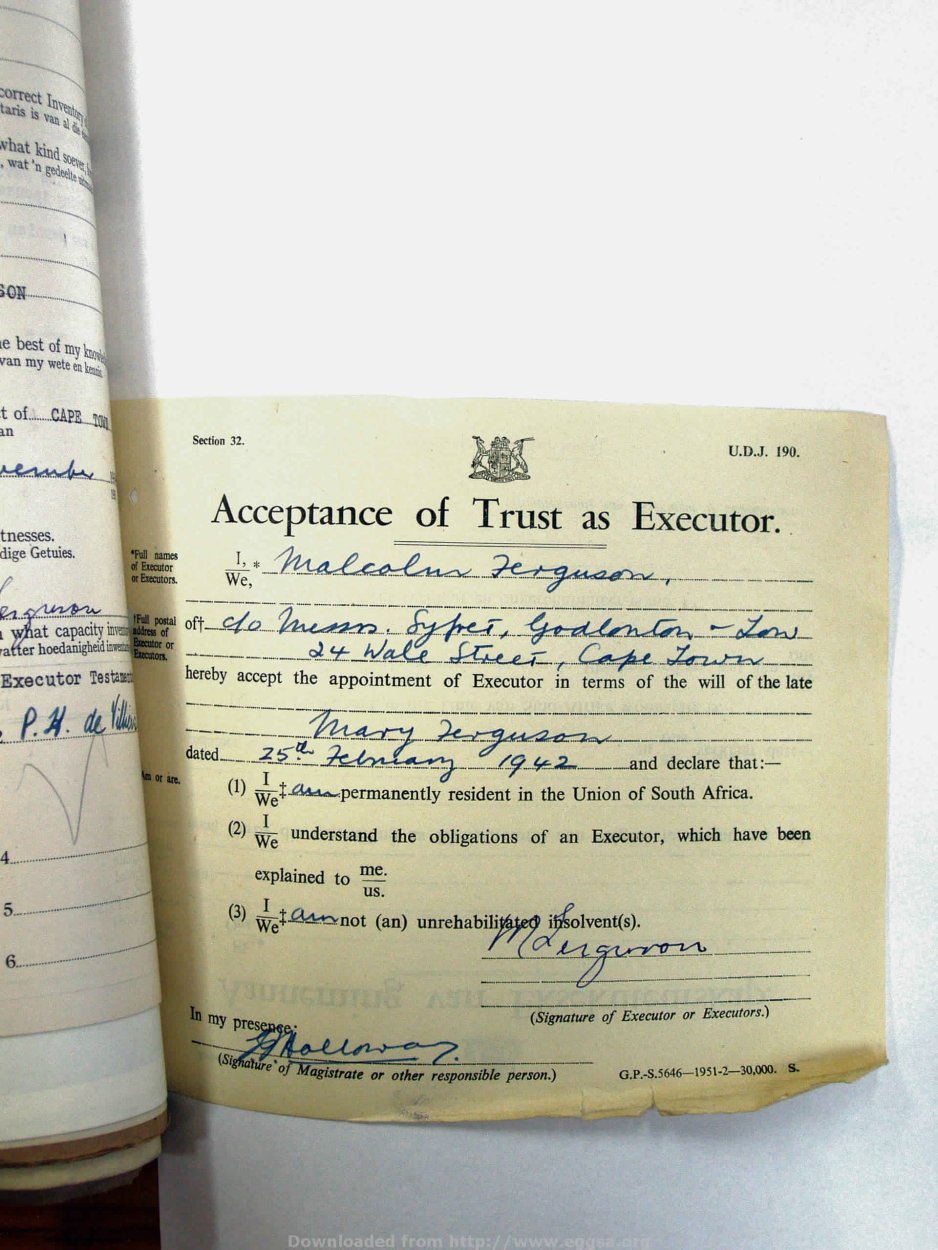 correct Inventory
taris is van al die
what kind soever,
, wat 'n gedeelte
SON
e best of my
van my wete en kennis.
t of CAPE TOWN
an
vember
tnesses.
dige Getuies.
Ferguson
what capacity
hoedanigheid
Executor
P. H. de Villiers
4
5
6
Section 32.
U.D.J. 190.
Acceptance of Trust as Executor.
*Full names
of Executor
or Executors.
I,
We,
* Malcolm Ferguson,
†Full postal
address of
Executor or
Executors.
of† c/o Messrs. Syfret, Godlonton - Low
24 Wale Street, Cape Town
hereby accept the appointment of Executor in terms of the will of the late
Mary Ferguson
dated 25th February 1942 and declare that:—
Am or are.
(1) I
We ‡ am permanently resident in the Union of South Africa.
(2) I
We understand the obligations of an Executor, which have been
explained to me.
us.
(3) I
We ‡ am not (an) unrehabilitated insolvent(s).
M Ferguson
(Signature of Executor or Executors.)
In my presence:
Holloway
(Signature of Magistrate or other responsible person.)
G.P.-S.5646—1951-2—30,000. S.
Downloaded from http://www.eggsa.org